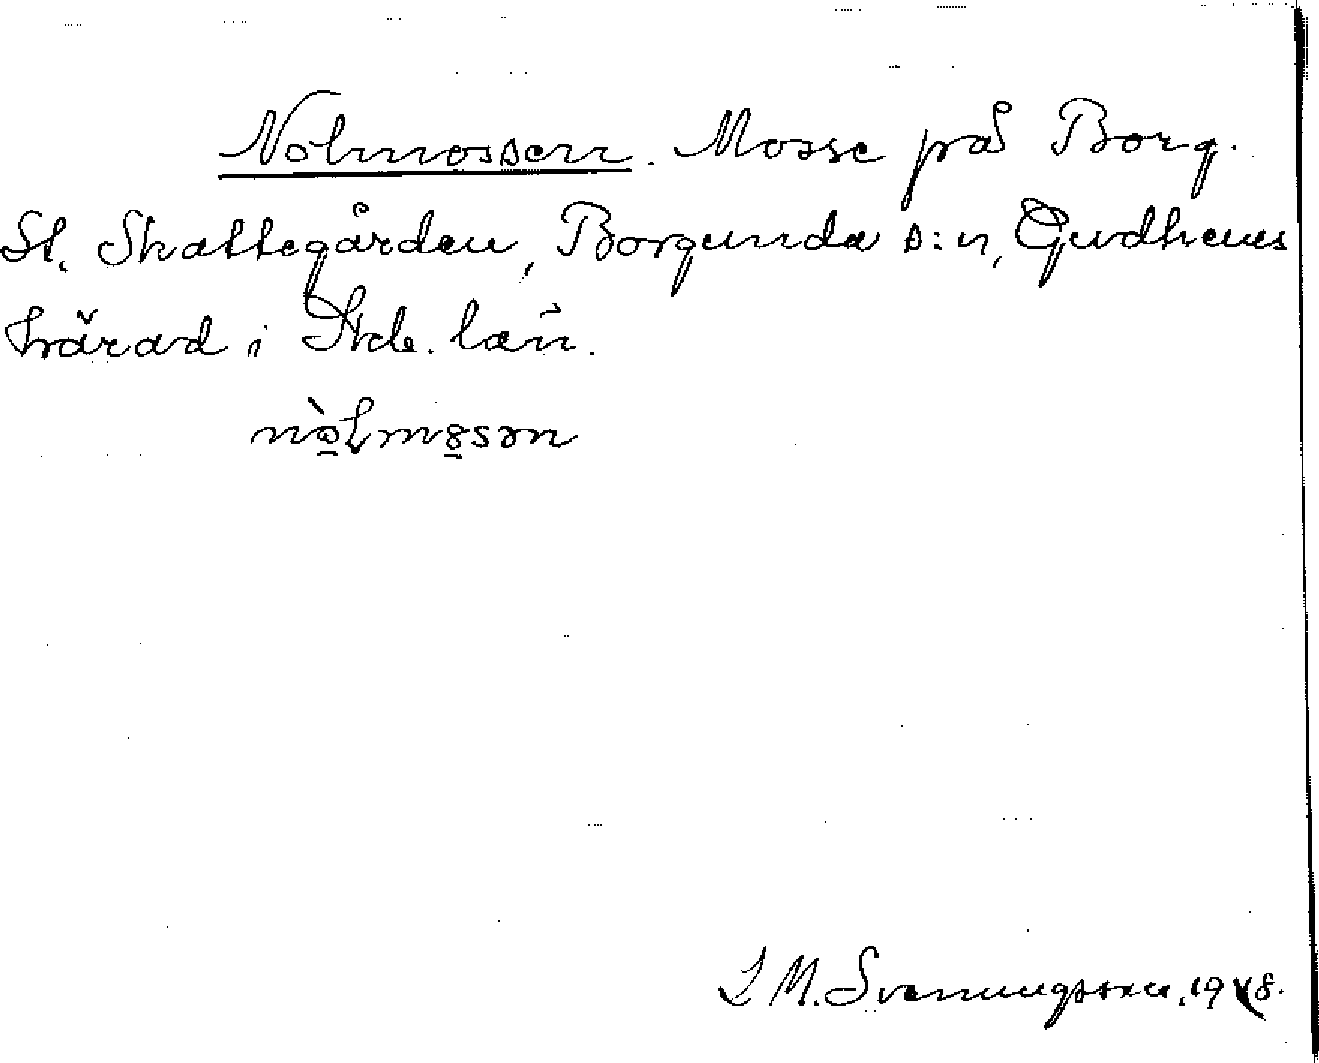 Nolmossen. Mosse på Borg.
St. Skattegården, Borgunda s:n, Gudhems
härad i Skb. län.
nòlmosən
S M. Svenungsson, 1948.